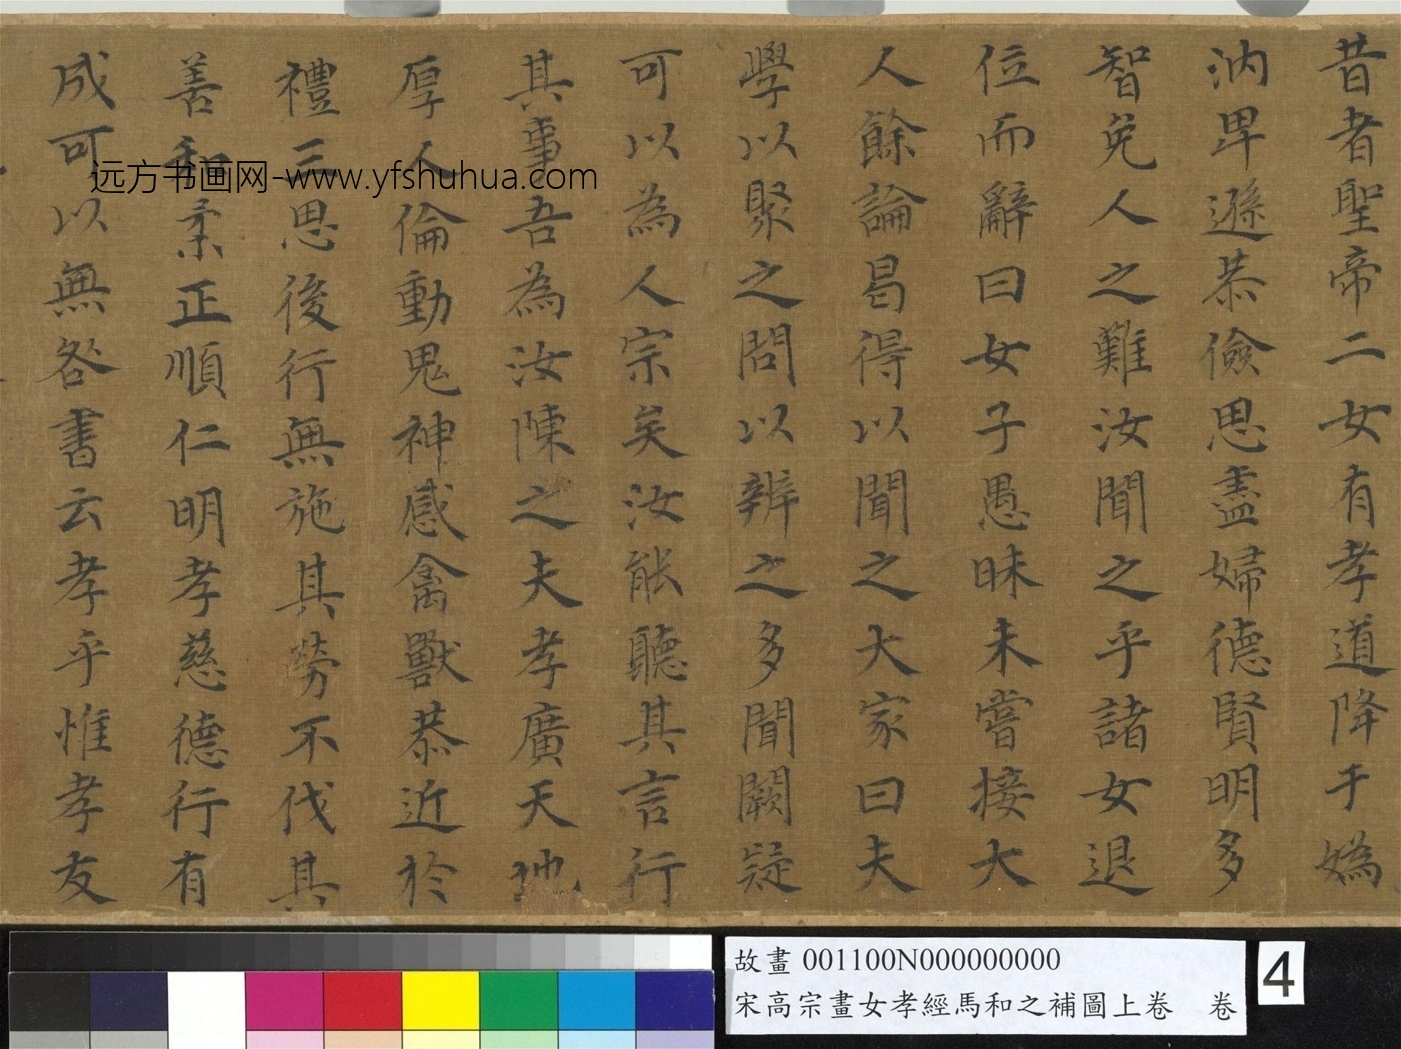 昔者聖帝二女有孝道降于媯
汭卑遜恭儉思盡婦德賢明多
智免人之難汝聞之乎諸女退
位而辭曰女子愚昧未嘗接大
人餘論曷得以聞之大家曰夫
學以聚之問以辨之多聞闕疑
可以為人宗矣汝能聽其言行
其事吾為汝陳之夫孝廣天地
厚人倫動鬼神感禽獸恭近於
禮三思後行無施其勞不伐其
善和柔正順仁明孝慈德行有
成可以無咎書云孝乎惟孝友
远方书画网-www.yfshuhua.com
故畫 001100N000000000
宋高宗畫女孝經馬和之補圖上卷 卷
4